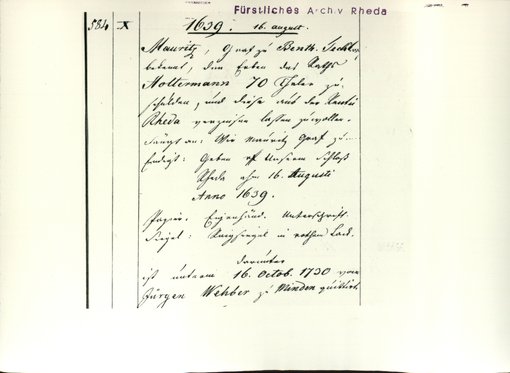 Fürstliches Archiv Rheda
584 X 1639. 16. august.
Mauritz, Graf zu Benth. Tecklbg,
bekennt, den Erben des Raths
Holtermann 70 Thaler zu
schulden, und diese aus der Rentei
Rheda verzinsen lassen zu wollen.
Fängt an: Wir Mauritz Graf zu
Endigt: Geben uff Unserm Schloß
Rheda ahm 16. Augusti
Anno 1639.
Papier. Eigenhänd. Unterschrift.
Siegel: Ringsiegel in rothem Lack.
darunter
ist unterm 16. Octob. 1730 von
Jürgen Wehber zu Minden quittirt.